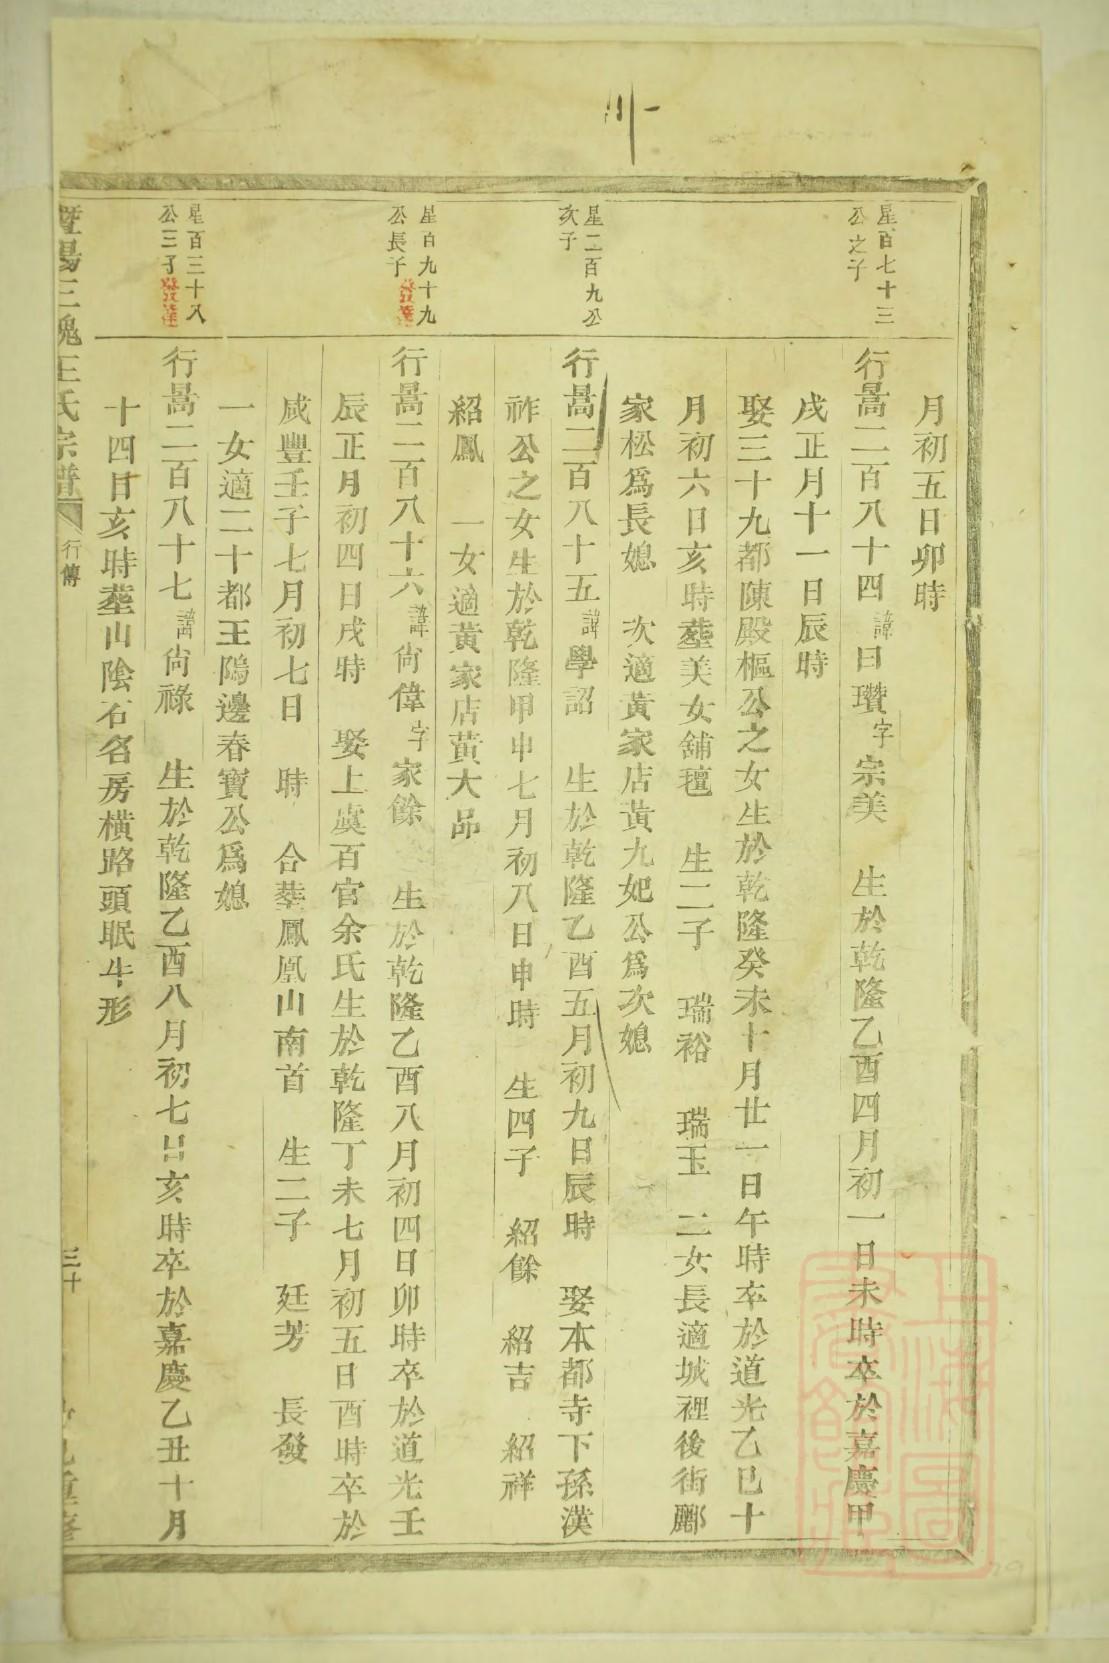 月初五日卯時
星百七十三
公之子
行暠二百八十四諱曰瓚字宗美 生於乾隆乙酉四月初一日未時卒於嘉慶甲
戌正月十一日辰時
娶三十九都陳殿樞公之女生於乾隆癸未十月廿一日午時卒於道光乙巳十
月初六日亥時塟美女舖氊 生二子 瑞裕 瑞玉 二女長適城裡後街酈
家松爲長媳 次適黃家店黃九妃公爲次媳
星二百九公
次子
行暠二百八十五諱學詔 生於乾隆乙酉五月初九日辰時 娶本都寺下孫漢
祚公之女生於乾隆甲申七月初八日申時 生四子 紹餘 紹吉 紹祥
紹鳳 一女適黃家店黃大昂
星百九十九
公長子發達
行暠二百八十六諱尙偉字家餘 生於乾隆乙酉八月初四日卯時卒於道光壬
辰正月初四日戌時 娶上虞百官余氏生於乾隆丁未七月初五日酉時卒於
咸豐壬子七月初七日 時 合塟鳳凰山南首 生二子 廷芳 長發
一女適二十都王隖邊春寶公爲媳
星百三十八
公三子發達
行暠二百八十七諱尙祿 生於乾隆乙酉八月初七日亥時卒於嘉慶乙丑十月
十四日亥時塟山陰石名房橫路頭眠牛形
暨陽三槐王氏宗譜 行傳 三十
上海圖
書館藏